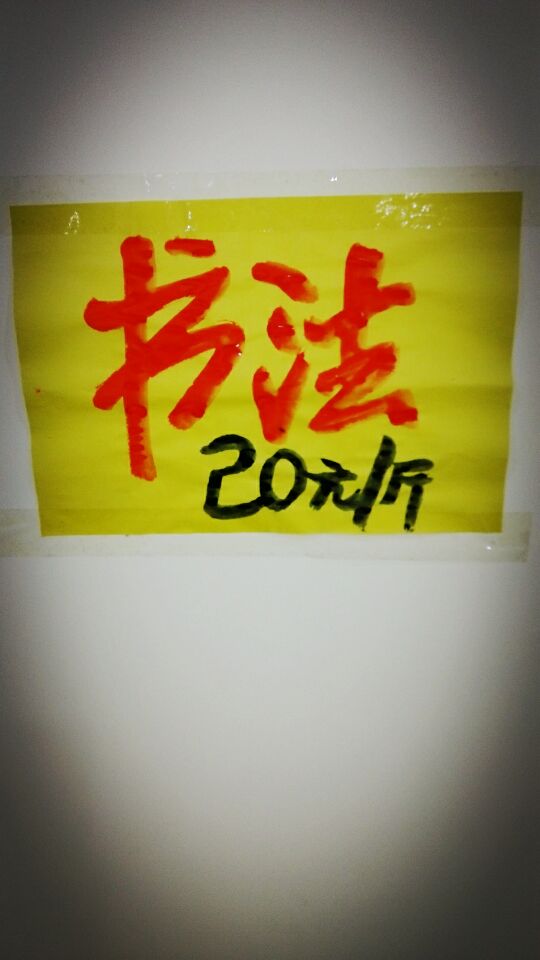 书法
20元/斤